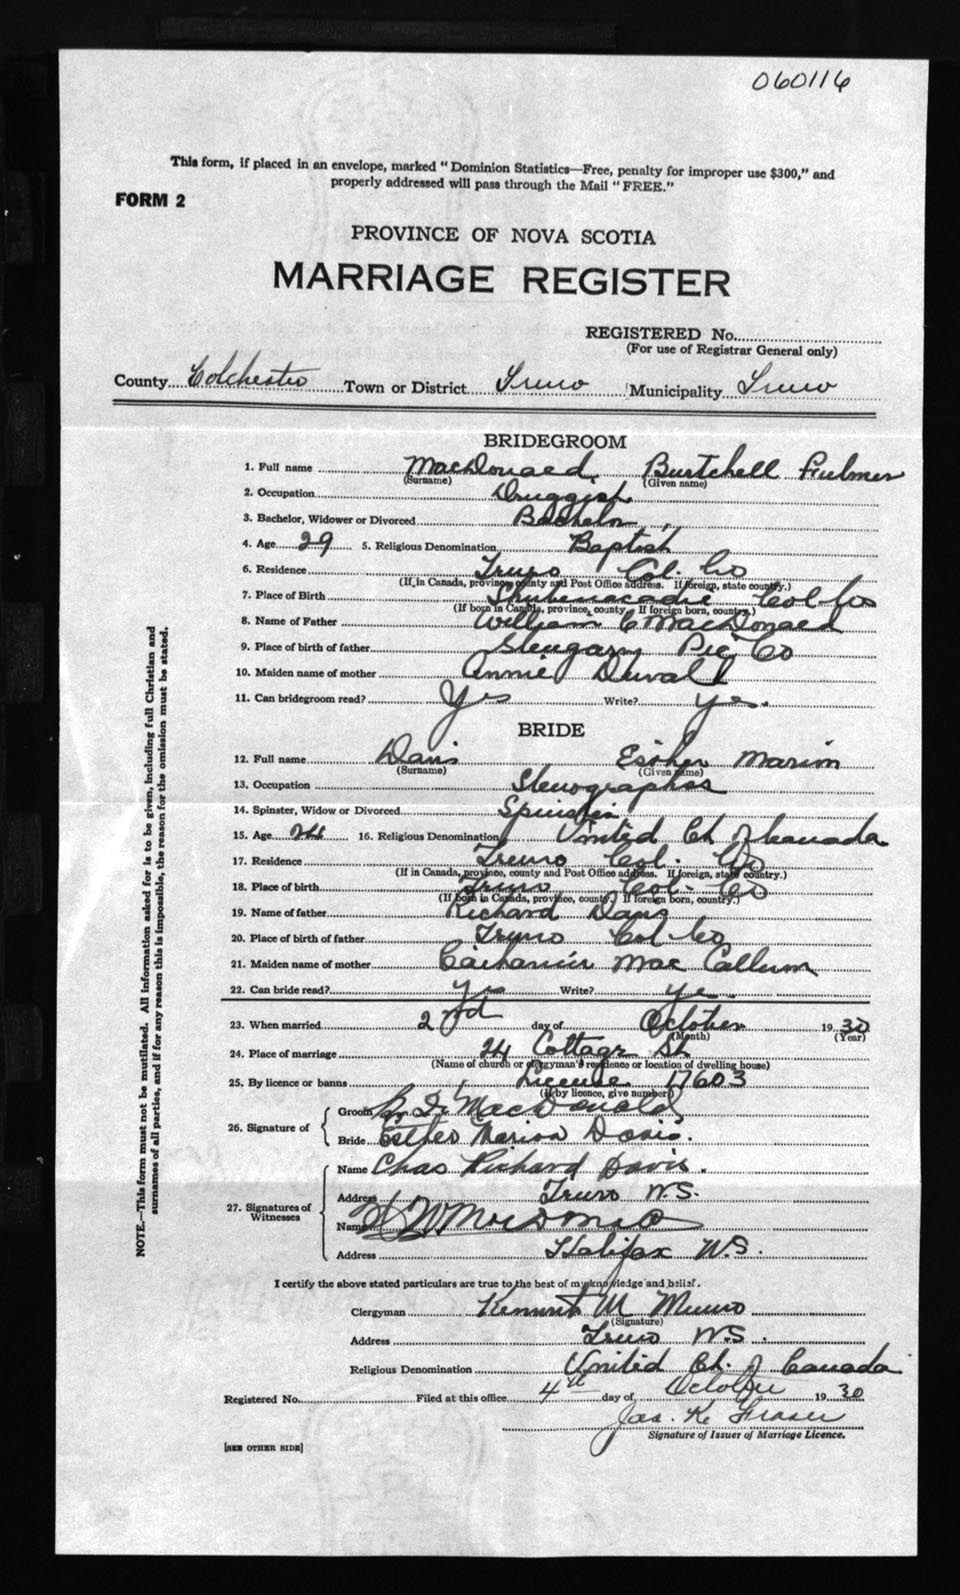 060116
This form, if placed in an envelope, marked "Dominion Statistics—Free, penalty for improper use $300," and
properly addressed will pass through the Mail "FREE."
FORM 2
PROVINCE OF NOVA SCOTIA
MARRIAGE REGISTER
REGISTERED No.
(For use of Registrar General only)
County Colchester Town or District Truro Municipality Truro
BRIDEGROOM
1. Full name MacDonald Burtchell Fulmer
(Surname) (Given name)
2. Occupation Druggist
3. Bachelor, Widower or Divorced Bachelor
4. Age 29 5. Religious Denomination Baptist
6. Residence Truro Col. Co
(If in Canada, province, county and Post Office address. If foreign, state country.)
7. Place of Birth Shubenacadie Col Co
(If born in Canada, province, county. If foreign born, country.)
8. Name of Father William C MacDonald
9. Place of birth of father Glengarry Pic Co
10. Maiden name of mother Annie Duvall
11. Can bridegroom read? Yes Write? yes.
BRIDE
12. Full name Davis Esther Marion
(Surname) (Given name)
13. Occupation Stenographer
14. Spinster, Widow or Divorced Spinster
15. Age 24 16. Religious Denomination United Ch of Canada
17. Residence Truro Col. Co
(If in Canada, province, county and Post Office address. If foreign, state country.)
18. Place of birth Truro Col- Co
(If born in Canada, province, county. If foreign born, country.)
19. Name of father Richard Davis
20. Place of birth of father Truro Col Co
21. Maiden name of mother Catharine Mac Callum
22. Can bride read? yes Write? yes
23. When married 2nd day of October 1930
(Month) (Year)
24. Place of marriage 24 Cottage St
(Name of church or clergyman's residence or location of dwelling house)
25. By licence or banns License 17603
(If by licence, give number)
26. Signature of
Groom B. F. MacDonald
Bride Esther Marion Davis.
27. Signatures of Witnesses
Name Chas Richard Davis.
Address Truro N.S.
Name
Address Halifax N.S.
I certify the above stated particulars are true to the best of my knowledge and belief.
Clergyman Kenneth M Munro
(Signature)
Address Truro N.S.
Religious Denomination United Ch. of Canada
Registered No. Filed at this office 4th day of October 1930
Jas. K. Fraser
Signature of Issuer of Marriage Licence.
[SEE OTHER SIDE]
NOTE.—This form must not be mutilated. All information asked for is to be given, including full Christian and
surnames of all parties, and if for any reason this is impossible, the reason for the omission must be stated.